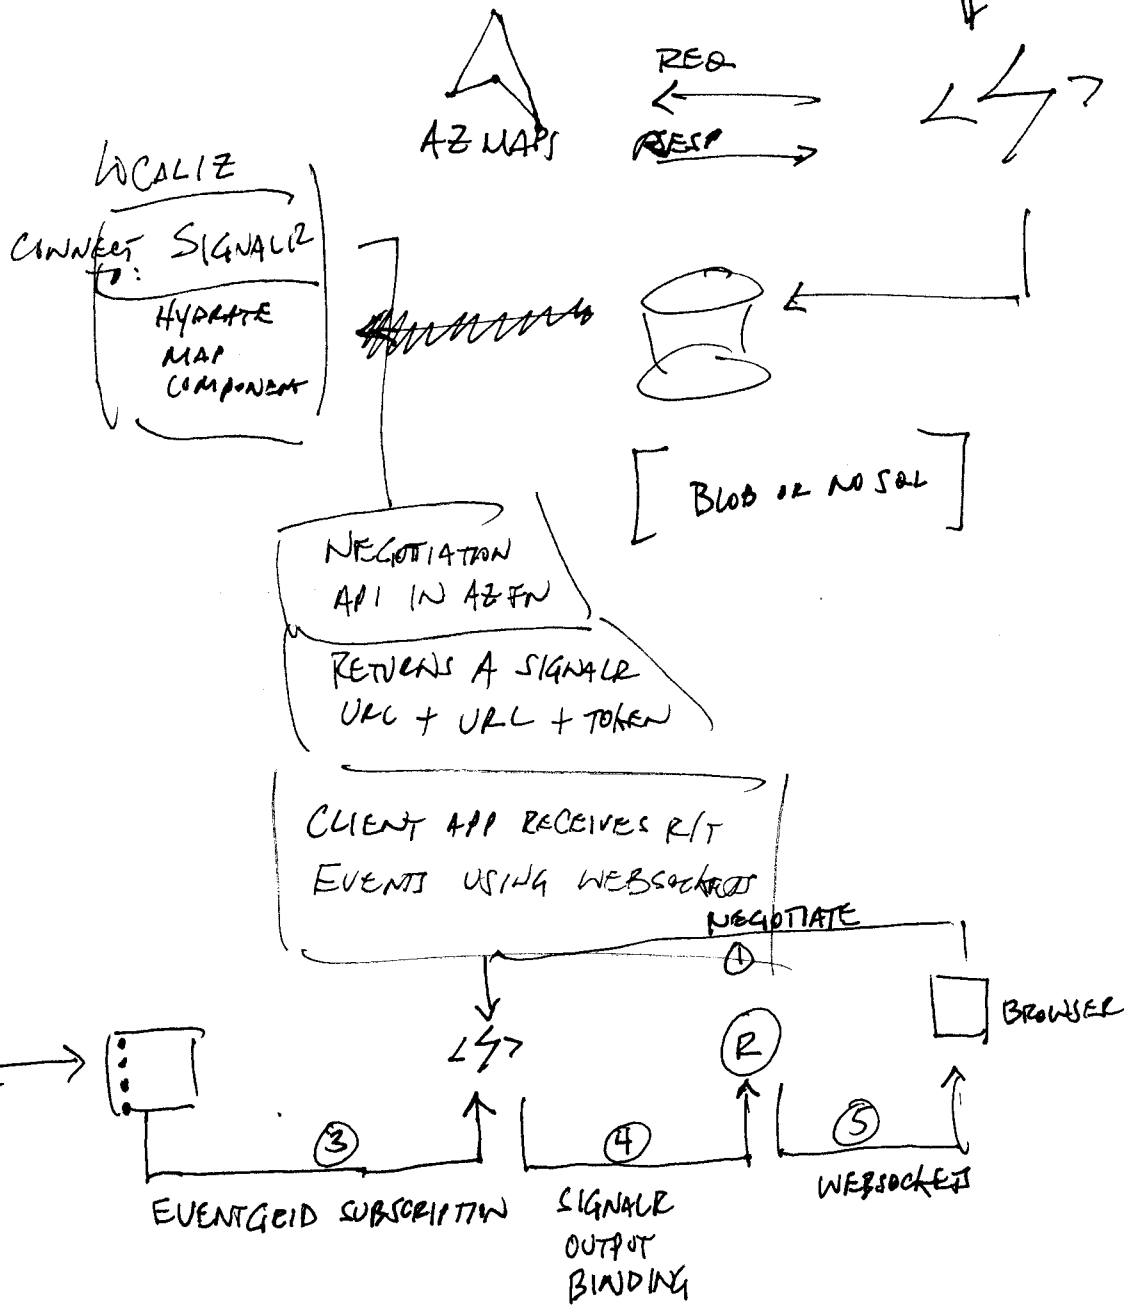 REQ
AZ MAPS
RESP
LOCALIZ
CONNECT SIGNALR
TO:
HYDRATE
MAP
COMPONENT
[ BLOB OR NO SQL ]
NEGOTIATION
API IN AZ FN
RETURNS A SIGNALR
URL + URL + TOKEN
CLIENT APP RECEIVES R/T
EVENTS USING WEBSOCKETS
NEGOTIATE
1
BROWSER
R
3
4
5
EVENTGRID SUBSCRIPTION
SIGNALR
OUTPUT
BINDING
WEBSOCKETS